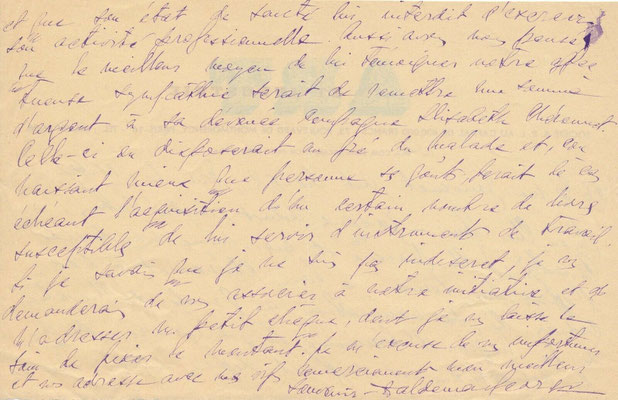 et que son état de santé lui interdit d'exercer
son activité professionnelle aussi avons nous pensé
que le meilleur moyen de lui témoigner notre affec
tueuse sympathie serait de remettre une somme
d'argent à sa dévouée compagne Elisabeth
Celle-ci en disposerait au gré du malade et, con
naissant mieux que personne ses goûts, ferait le cas
echeant l'acquisition d'un certain nombre de livres
susceptible de lui servir d'instrument de travail.
Si je savais que je ne suis pas indiscret, je vous
demanderais de vous associer à notre initiative et de
m'adresser un petit chèque, dont je vous laisse le
soin de fixer le montant. Je m'excuse de vous importuner
et vous adresse avec mes vifs remerciements mes meilleurs
souvenirs - Waldemar George